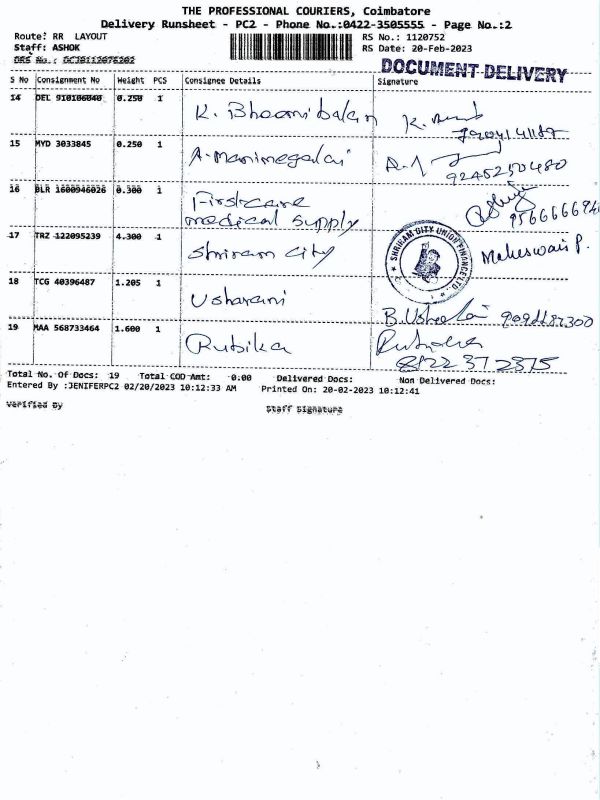 THE PROFESSIONAL COURIERS, Coimbatore
Delivery Runsheet - PC2 - Phone No.:0422-3505555 - Page No.:2
Route: RR LAYOUT
RS No.: 1120752
Staff: ASHOK
RS Date: 20-Feb-2023
DRS No.:
DOCUMENT DELIVERY
S No Consignment No Weight PCS Consignee Details Signature
14 DEL 910106040 0.250 1 K. Bhoomibalan
15 MYD 3033845 0.250 1 A. Manimegalai
9245250480
16 BLR 1600946026 0.300 1 Firstcare
medical supply
17 TRZ 122095239 4.300 1 Shriram city Maheswari P.
SHRIRAM CITY UNION FINANCE LTD.
18 TCG 40396487 1.205 1 Usharani
19 MAA 568733464 1.600 1 Rubika
8122372375
Total No. Of Docs: 19 Total COD Amt: 0.00 Delivered Docs: Non Delivered Docs:
Entered By :JENIFERPC2 02/20/2023 10:12:33 AM Printed On: 20-02-2023 10:12:41
Verified By Staff Signature